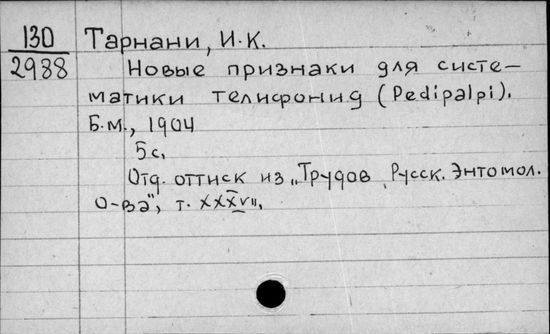 130 Тарнани, И.К.
2988 Новые признаки для систе-
матики телифонид (Pedipalpi).
Б.м., 1904
5с.
Отд. оттиск из „Трудов Русск. Энтомол.
О-ва", т. XXXVII.